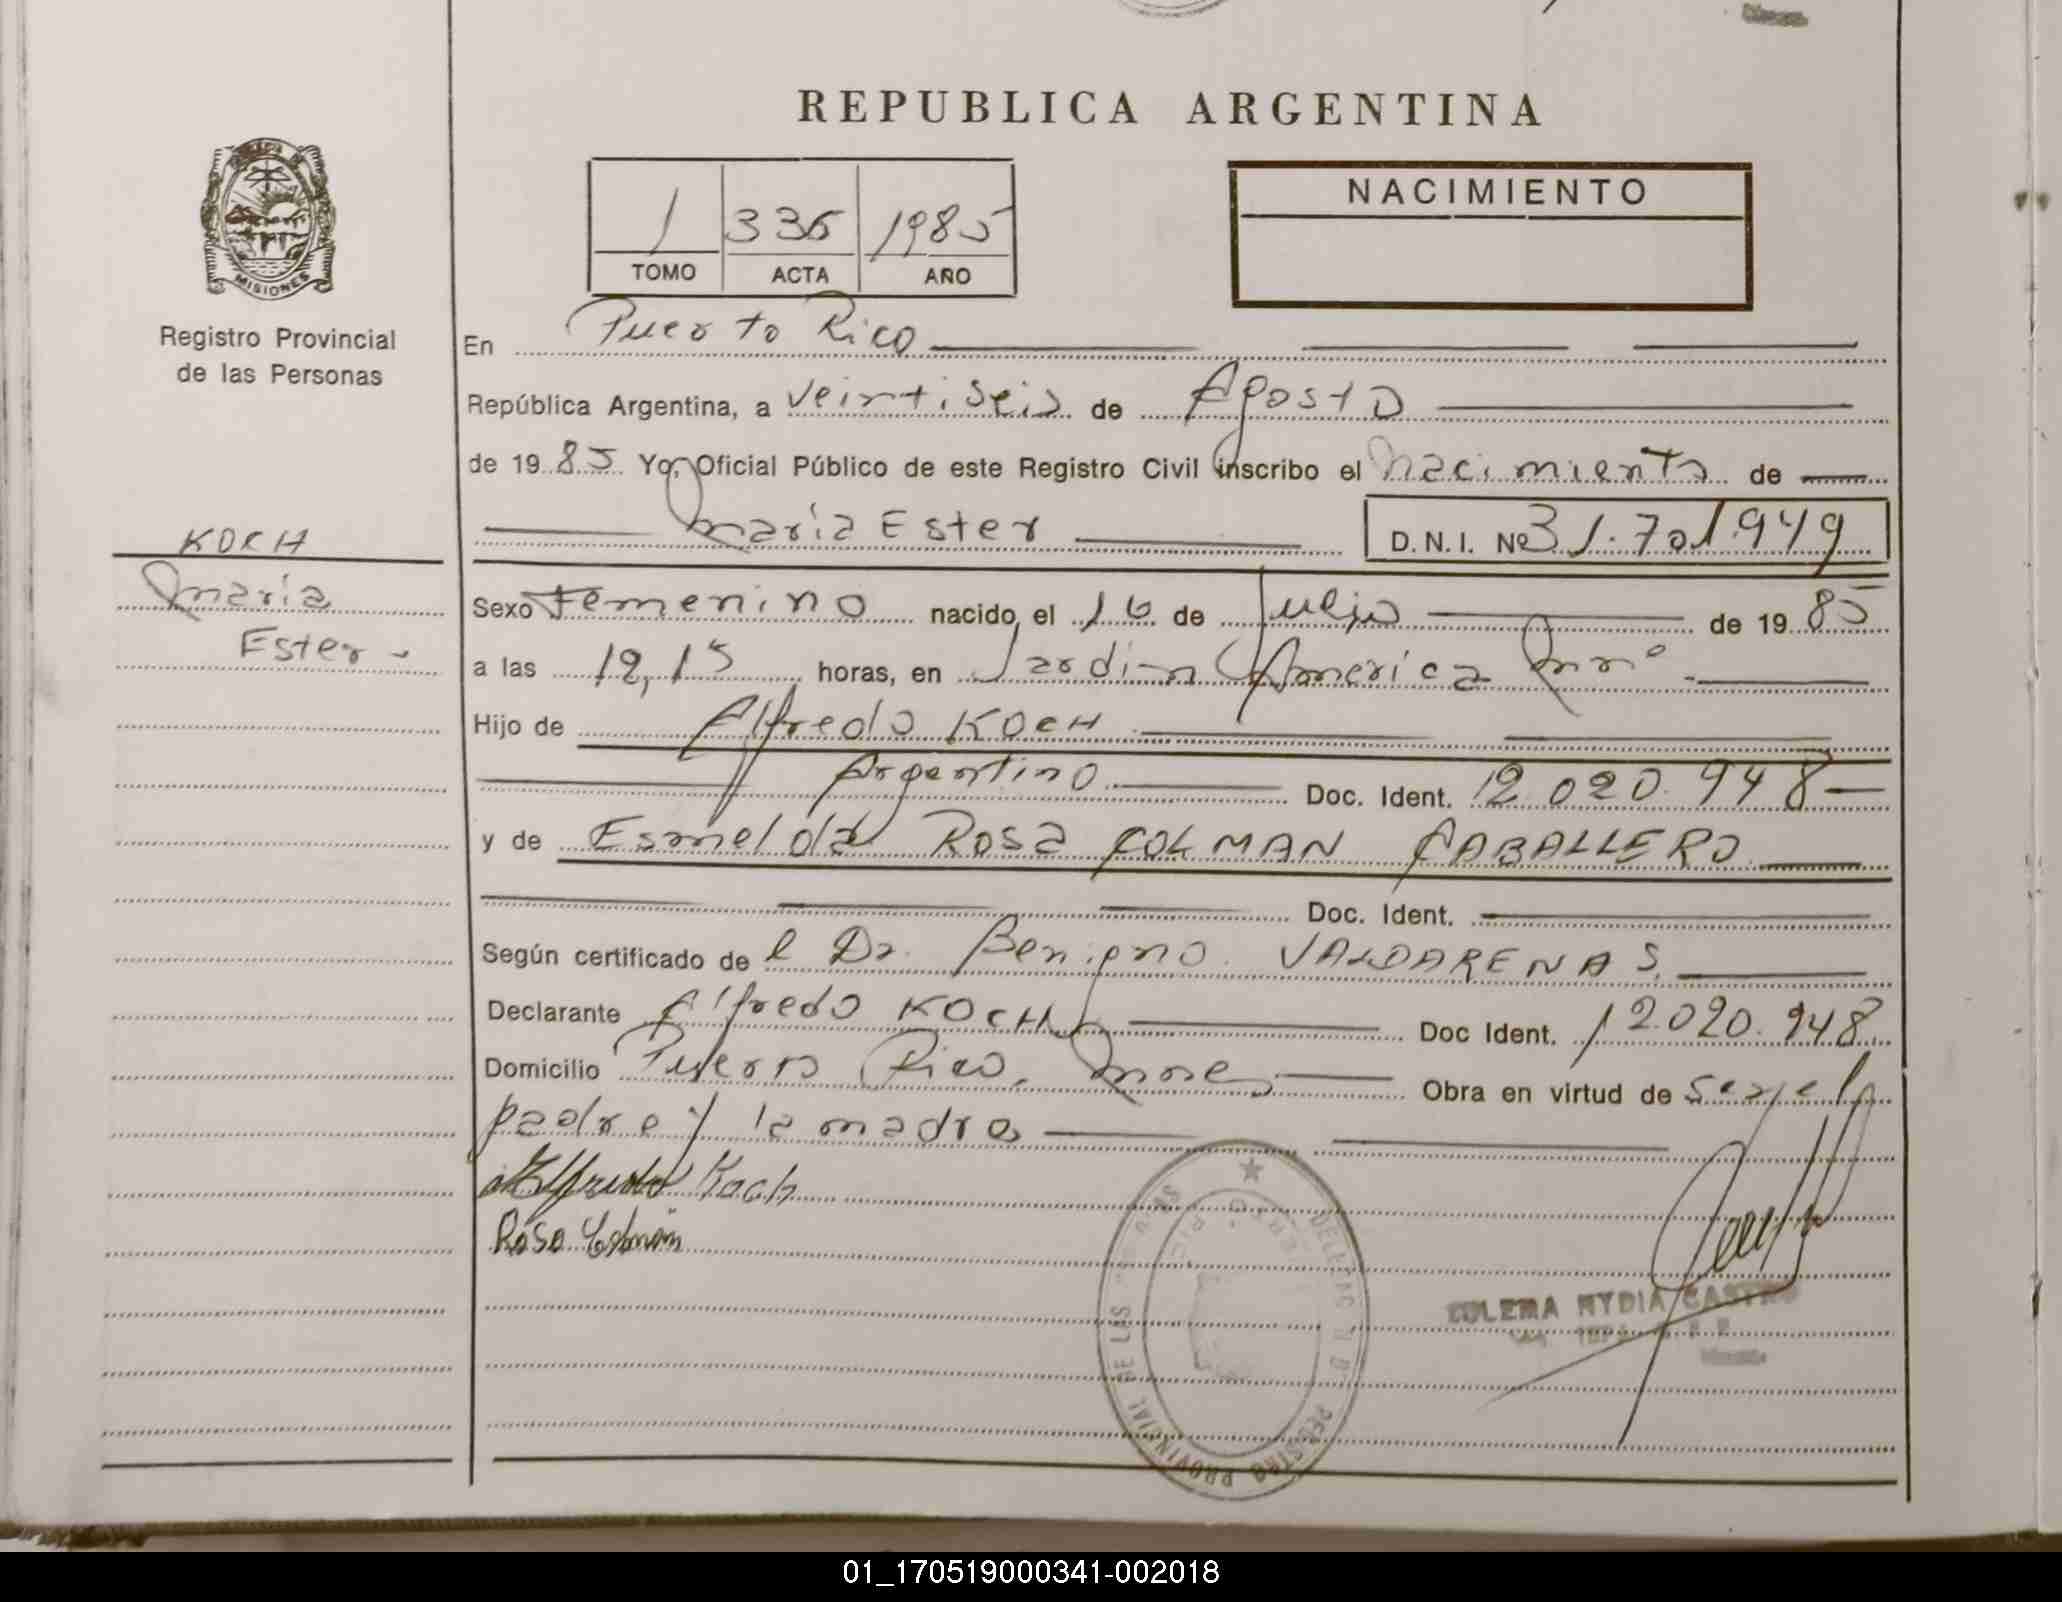 REPUBLICA ARGENTINA
1 336 1985
TOMO ACTA AÑO
NACIMIENTO
MISIONES
Registro Provincial
de las Personas
KOCH
Maria
Ester -
En Puerto Rico
República Argentina, a veintiseis de Agosto
de 1985 Yo, Oficial Público de este Registro Civil inscribo el Nacimiento de
Maria Ester D.N.I. Nº 31.701.949
Sexo Femenino nacido el 16 de Julio de 1985
a las 12,15 horas, en Jardin America
Hijo de Alfredo KOCH
Argentino Doc. Ident. 12.020.948
y de Esmelda Rosa COLMAN CABALLERO
Doc. Ident.
Según certificado del Dr. Benigno VALDARENAS.
Declarante Alfredo KOCH Doc Ident. 12.020.948
Domicilio Puerto Rico, Mnes Obra en virtud de ser el
padre y la madre
Alfredo Koch
Rosa Colmán
REGISTRO PROVINCIAL DE LAS
NYDIA CASTRO
01_170519000341-002018